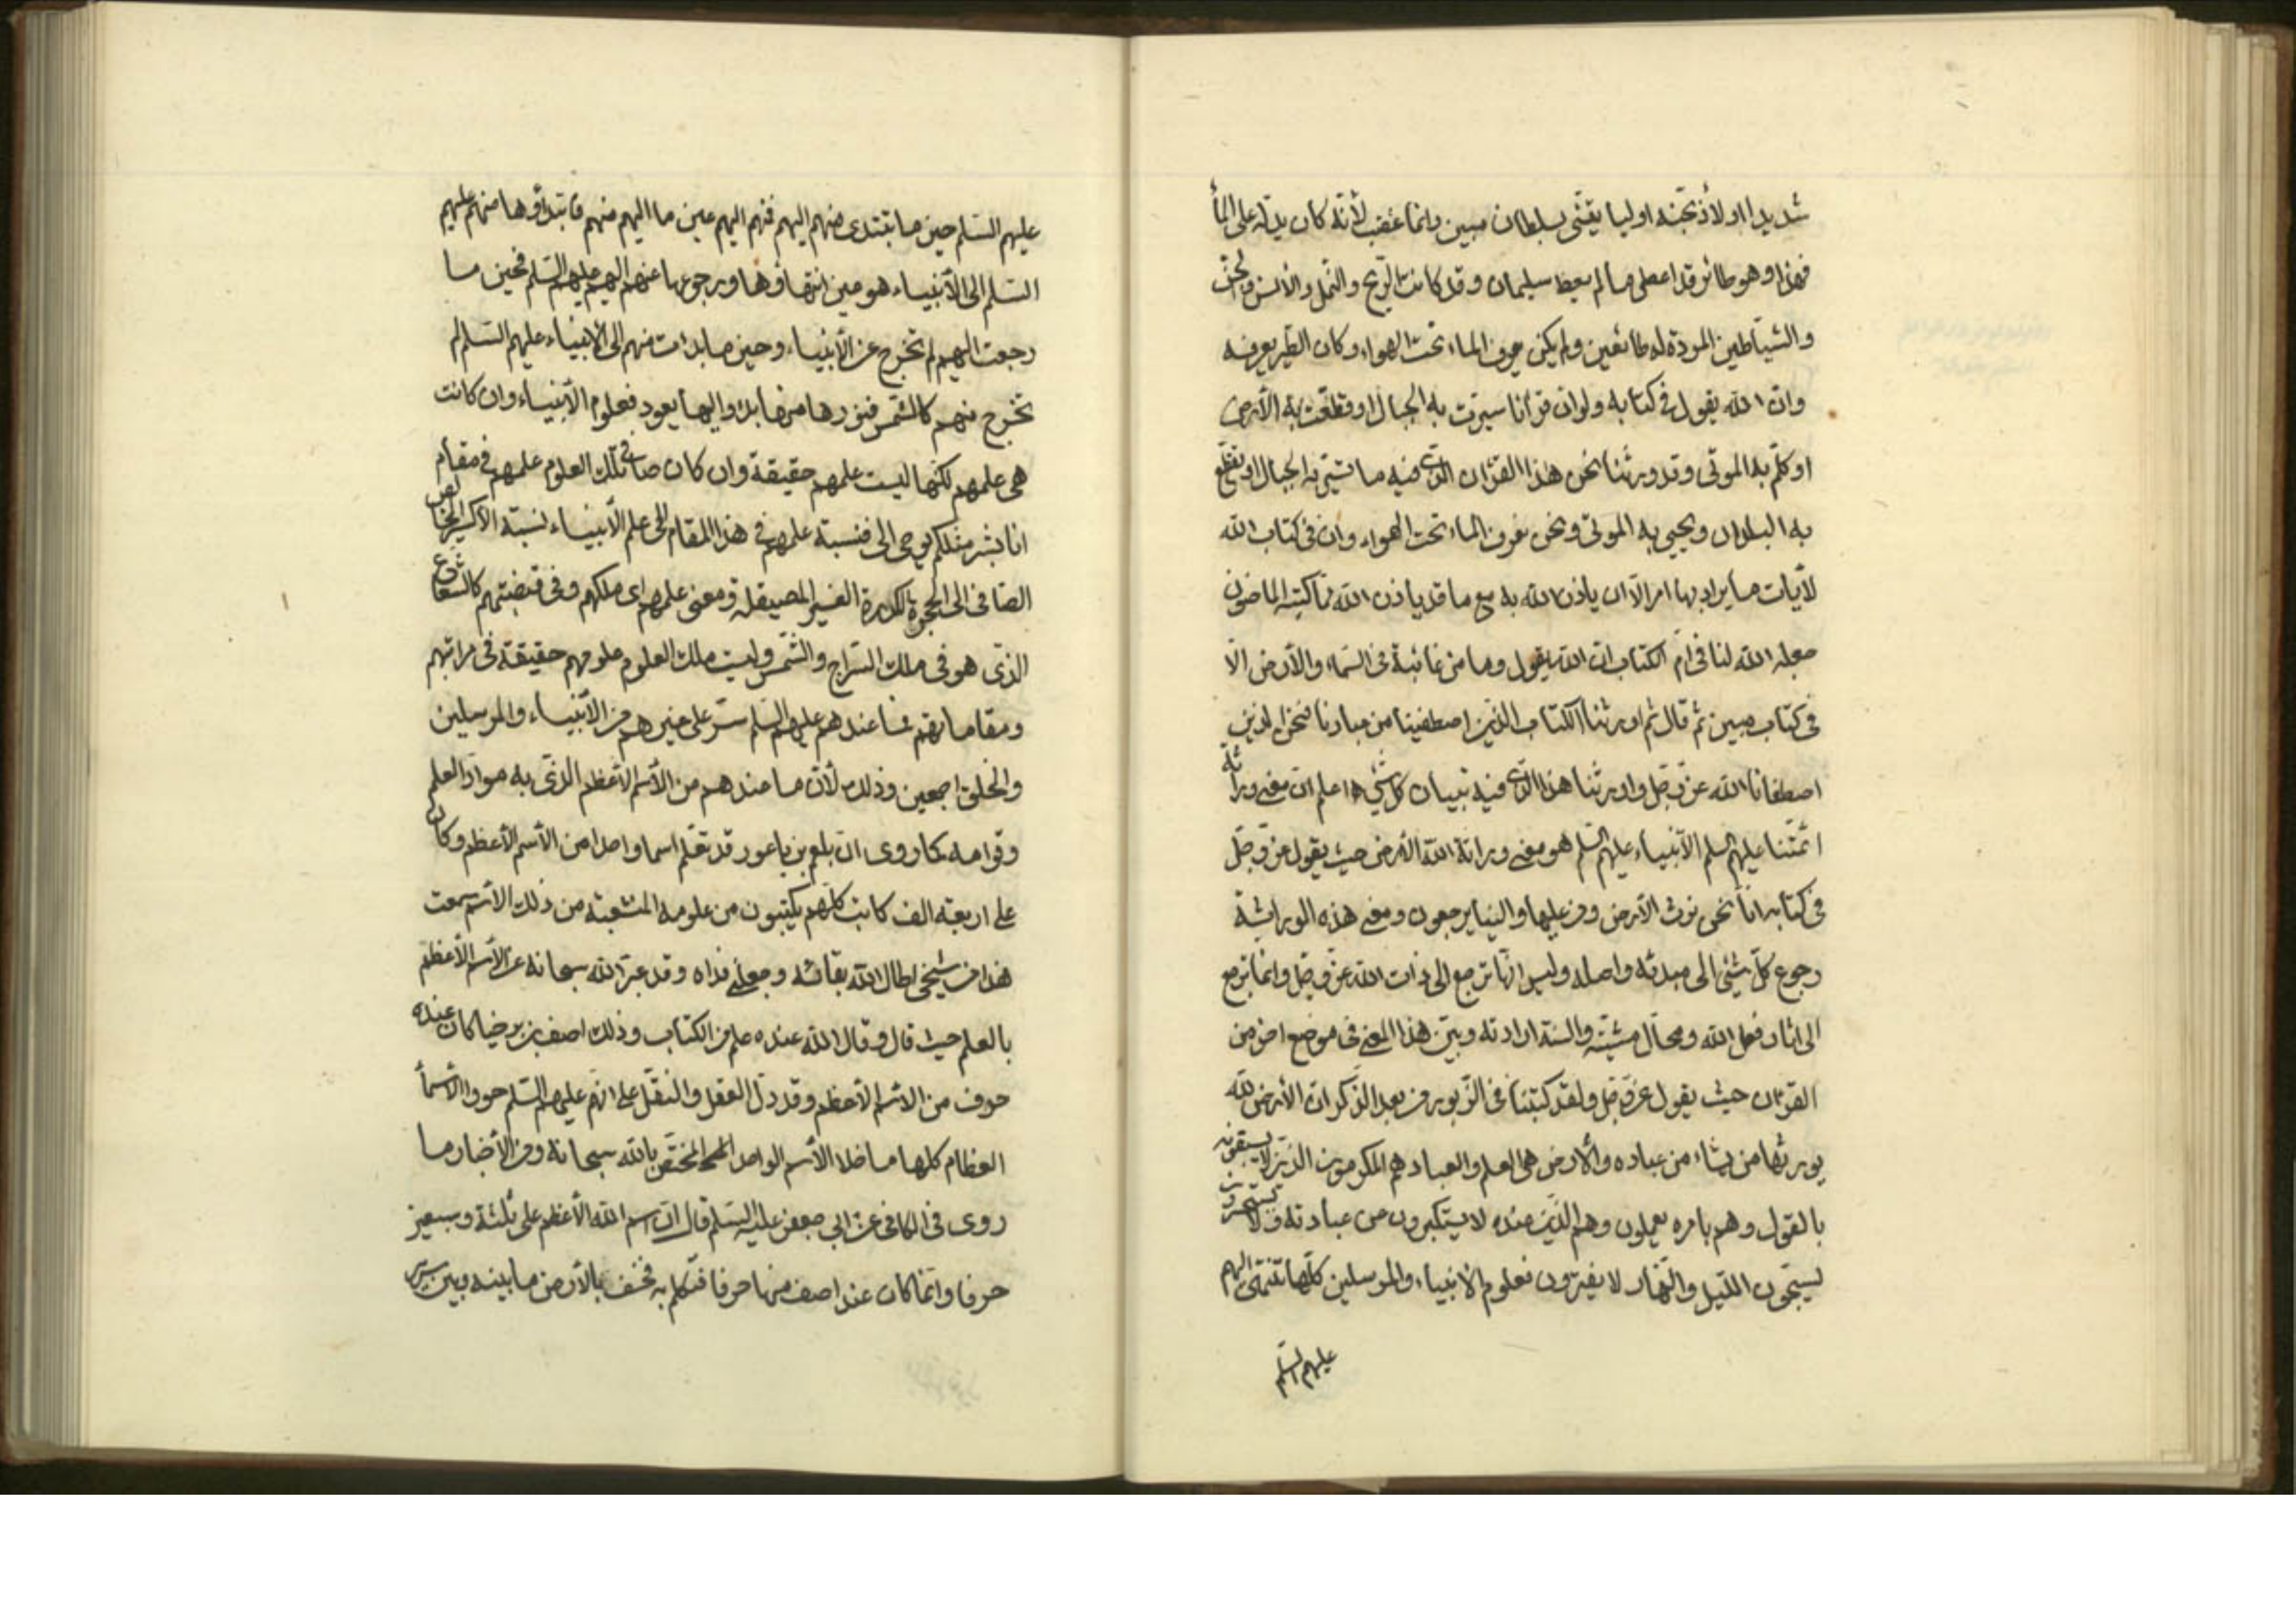 شديدا اولأذبحنه اوليا يقنى بسلطان مبين وانما غضب لأنه كان يدله على المأ
فهذا وهو طائر قد اعطى ما لم يعط سليمان وقد كانت الريح والنمل والأنس والجن
والشياطين المردة له طائعين ولم يكن يعرف الماء تحت الهواء وكان الطير يعرفه
وان الله يقول فى كتابه ولو ان قرأنا سيرت به الجبال او قطعت به الأرض
او كلم به الموتى وقد ورثنا نحن هذا القرآن الذى فيه ما تسير به الجبال او تقطع
به البلدان ويحيى به الموتى ونحن نعرف الماء تحت الهواء وان فى كتاب الله
لأيات ما يراد بها امر الا ان ياذن الله به مع ما قد ياذن الله مما كتبه الماضون
جعله الله لنا فى ام الكتاب ان الله يقول وما من غائبة فى السماء والأرض الا
فى كتاب مبين ثم قال ثم اورثنا الكتاب الذين اصطفينا من عبادنا فنحن الذين
اصطفانا الله عز وجل واورثنا هذا الذى فيه تبيان كل شئ اعلم ان معنى وراثة
ائمتنا عليهم السلم الأنبياء عليهم السلم هو معنى وراثة الله الأرض حيث يقول عز وجل
فى كتابه انا نحن نرث الأرض ومن عليها والينا يرجعون ومعنى هذه الوراثة
رجوع كل شئ الى مبدئه واصله وليس انها ترجع الى ذات الله عز وجل وانما ترجع
الى اثار فعل الله ومحال مشيته والسنة ارادته وبين هذا المعنى فى موضع اخر من
القرآن حيث يقول عز وجل ولقد كتبنا فى الزبور من بعد الذكر ان الأرض لله
يورثها من يشاء من عباده والأرض هى العلم والعباد هم المكرمون الذين لا يسبقونه
بالقول وهم بامره يعملون وهم الذين عنده لا يستكبرون عن عبادته ولا يستحسرون
يسبحون الليل والنهار لا يفترون فعلوم الأنبياء والمرسلين كلها تنتهى اليهم
عليهم السلم
عليهم السلم حين ما تبتدى منهم اليهم فنهم اليهم عين ما اليهم منهم فابتداؤها منهم عليهم
السلم الى الأنبياء هو عين انتهاؤها ورجوعها عنهم اليهم عليهم السلم فحين ما
رجعت اليهم لم تخرج عن الأنبياء وحين ما بدات منهم الى الأنبياء عليهم السلم لم
تخرج منهم كالشمس فنورها منها بدا واليها يعود فعلوم الأنبياء وان كانت
هى علمهم لكنها ليست علمهم حقيقة وان كان صافى تلك العلوم علمهم فى مقام
انا بشر مثلكم يوحى الى فنسبة علمهم فى هذا المقام الى علم الأنبياء نسبة الأكسير الخالص
الصافى الى الحجرة الكدرة الغير المصيقلة ومعنى علمهم اى ملكهم وفى قبضتهم كالشعاع
الذى هو فى ملك السراج والشمس وليست ملك العلوم علومهم حقيقة فى مراتبهم
ومقاماتهم فما عندهم عليهم السلم ستر على غيرهم من الأنبياء والمرسلين
والخلق اجمعين وذلك لأن ما عندهم من الأسم الأعظم الذى به مواد العلم
وقوامه كما روى ان بلعم بن باعور قد تعلم اسما واحدا من الأسم الأعظم وكان
على اربعة الف كاتب كلهم يكتبون من علومه المنشعبة من ذلك الأسم سمعت
هذا من شيخى اطال الله بقائه وجعلنى فداه وقد عبر الله سبحانه عن الأسم الأعظم
بالعلم حيث قال وقال الله عنده علم من الكتاب وذلك اصف بن برخيا كان عنده
حرف من الأسم الأعظم وقد دل العقل والنقل على انهم عليهم السلم حووا الأسمأ
العظام كلها ما خلا الأسم الواحد المختص بالله سبحانه ومن الأخبار ما
روى فى الكافى عن ابى جعفر عليه السلم قال ان اسم الله الأعظم على ثلثة وسبعين
حرفا وانما كان عند اصف منها حرفا فتكلم به فخسف بالأرض ما بينه وبين سرير